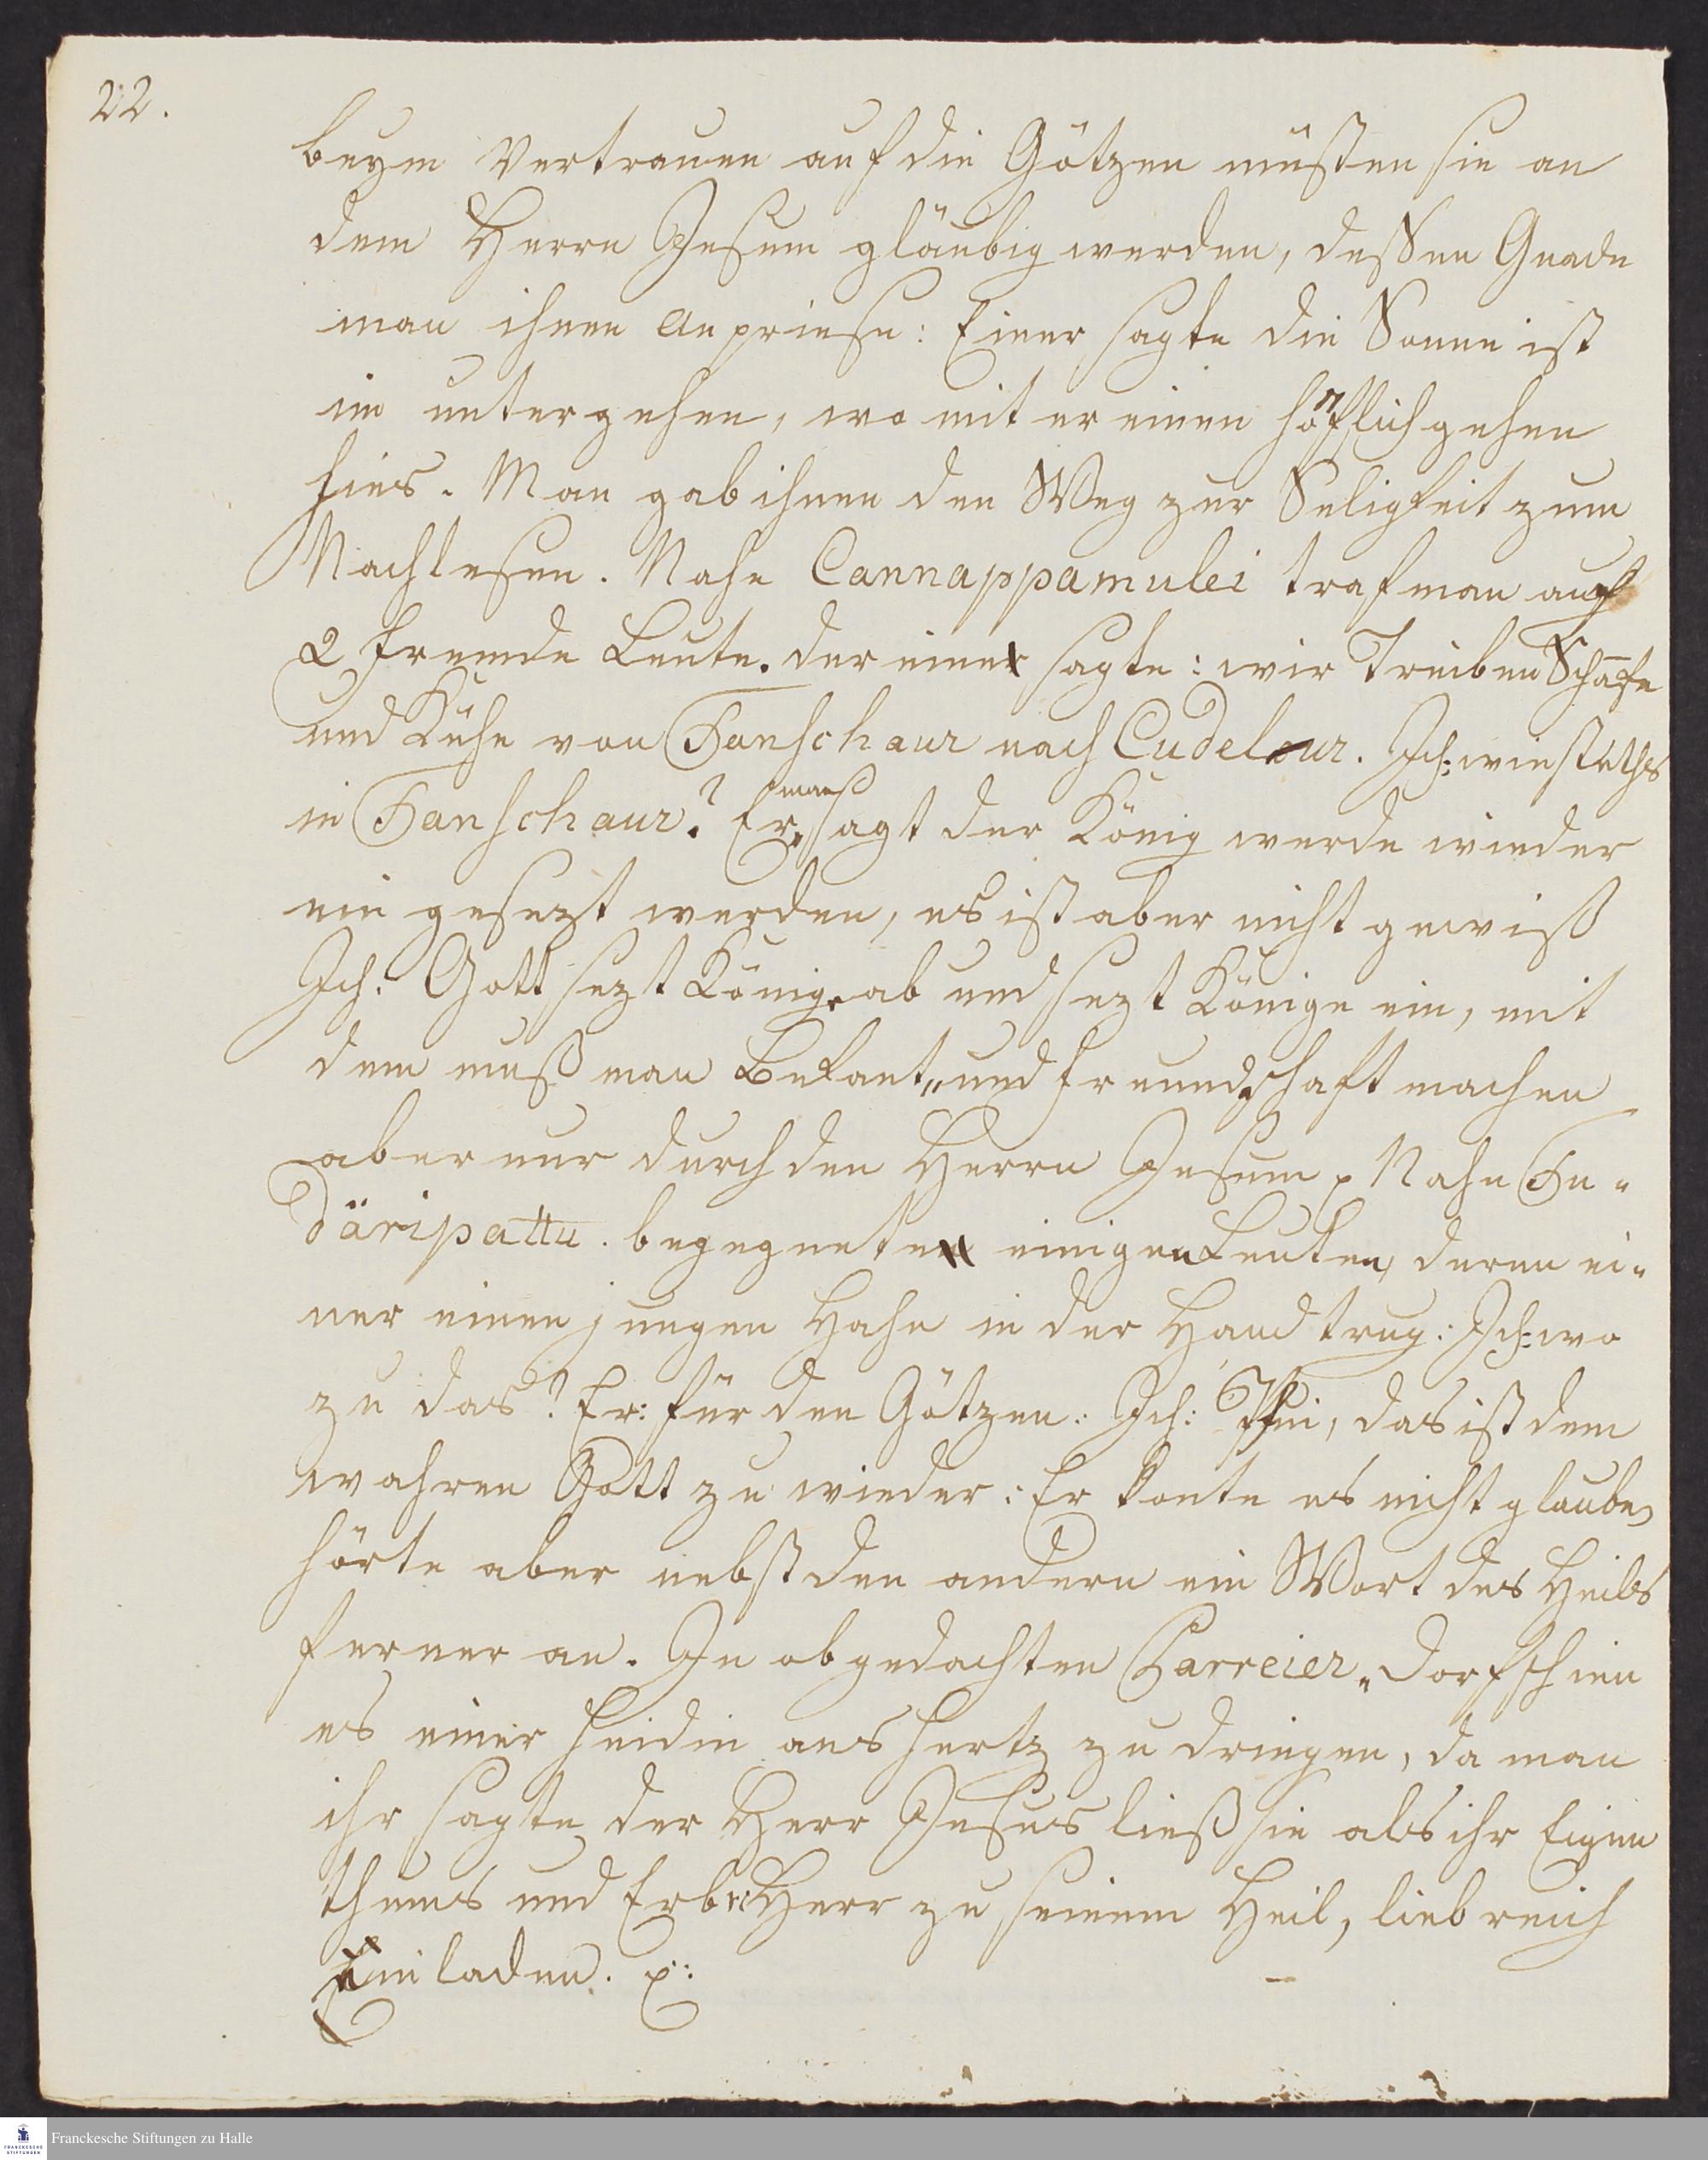 22.
beym Vertrauen auf die Götzen müßten sie an
dem Herrn Jesum gläubig werden, deßen Gnade
man ihnen anpriese: Einer sagte die Sonne ist
im untergehen, wo mit er einen höflich gehen
hies. Man gab ihnen den Weg zur Seligkeit zum
Nachlesen. Nahe Cannappamulei traf man auch
2 fremde Leute. der eine sagte: wir Treiben Schafe
und Kühe von Tanschaur nach Cudelur. Ich: wie stehts
in Tanschaur? Er: man sagt der König werde wieder
ein gesezt werden, es ist aber nicht gewiß
Ich: Gott sezt Könige ab und sezt Könige ein, mit
dem muß man Bekant„ und freundschaft machen
aber nur durch den Herrn Jesum. Nahe Tu„
däripattu. begegnete einigen Leuten, deren ei„
ner einen jungen Hahn in der Hand trug: Ich: wo
zu das? Er: für den Götzen. Ich: Pfui, das ist dem
wahren Gott zu wieder: Er konte es nicht glauben
hörte aber nebst den andern ein Wort des Heils
ferner an. In obgedachten Barreier„ Dorf schien
es einer Heidin ans Hertz zu dringen, da man
ihr sagte der Herr Jesus ließ sie als ihr Eigen
thums und Erb Herr zu seinem Heil, liebreich
Einladen. p:
Franckesche Stiftungen zu Halle
FRANCKESCHE
STIFTUNGEN